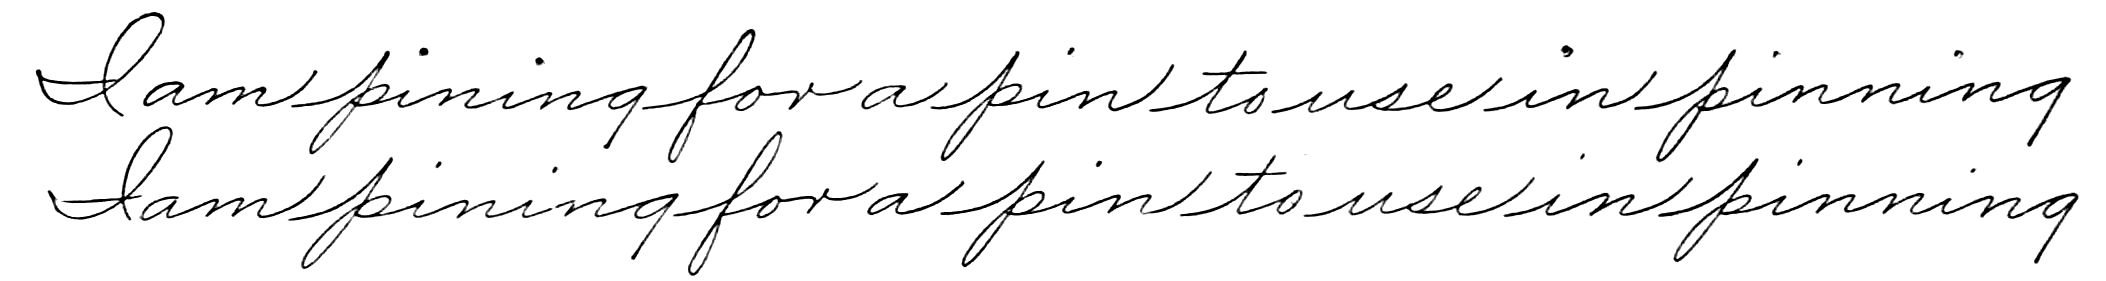 I am pining for a pin to use in pinning
I am pining for a pin to use in pinning